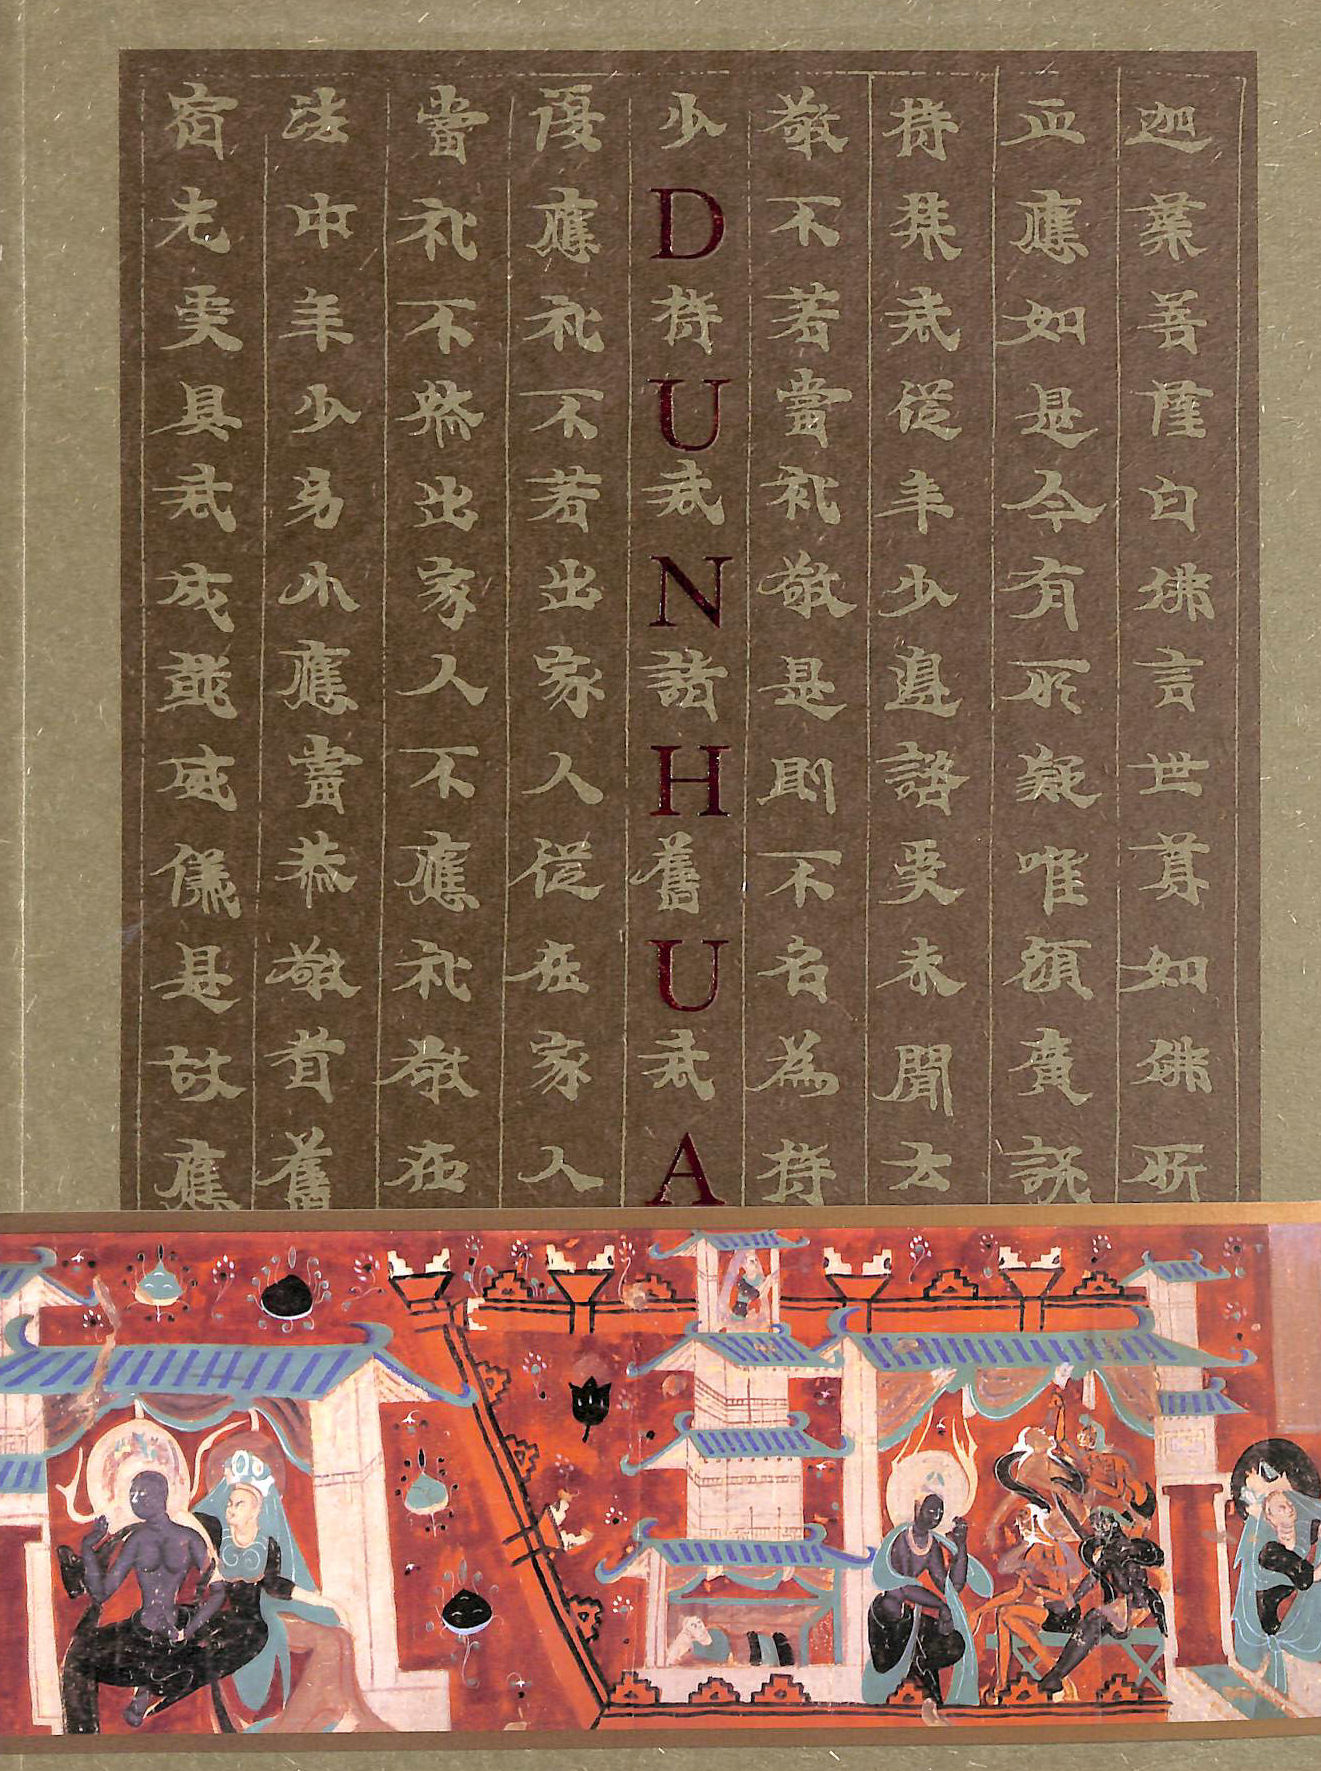 迦葉菩薩白佛言世尊如佛所
正應如是今有所疑唯願廣說
持禁戒從年少邊諮受未聞云
敬不若當礼敬是則不名為持
少持戒諸舊戒
DUNHUA
復應礼不若出家人從在家人
當礼不然出家人不應礼敬在
法中年少幼小應當恭敬耆舊
宿先受具戒成就威儀是故應